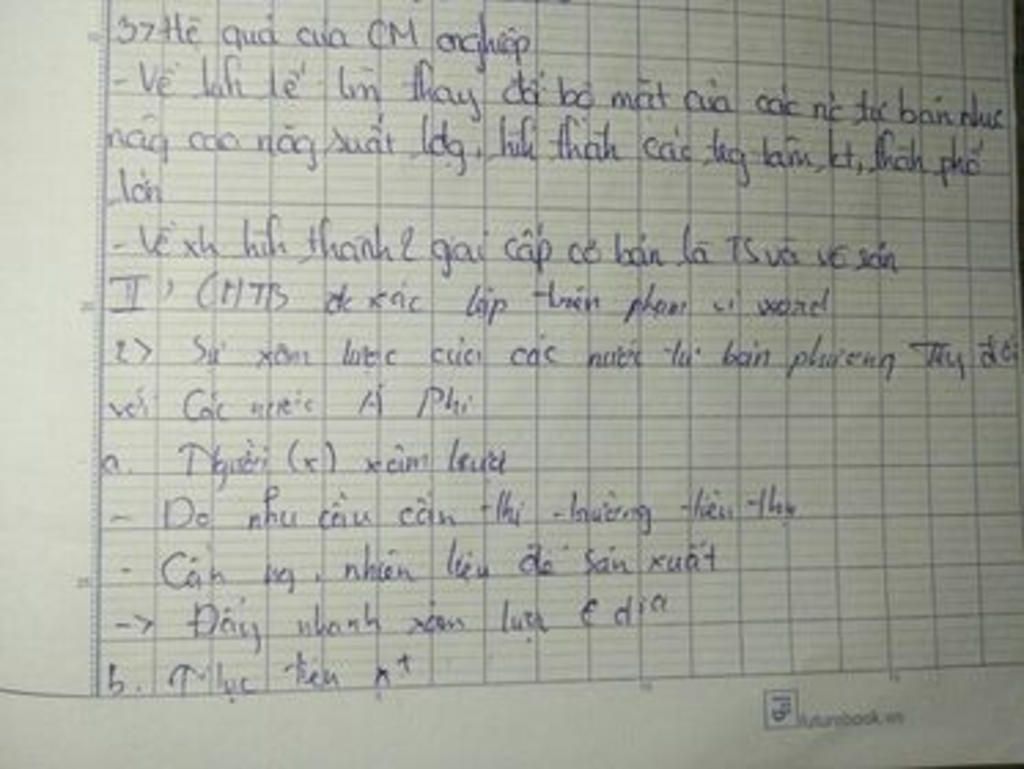 3> Hệ quả của CM nghiệp
- Về kih tế làm thay đổi bộ mặt của các nc tư bản như
nâg cao năg suất lđg, hìh thàh các tyg tâm kt, thàh phố
lớn
- Về xh hìh thành 2 giai cấp cơ bản là TS và vô sản
II, CNTB đc xác lập trên phạm vi word
2> Sự xâm lược của các nước tư bản phương Tây đối
với Các nước Á Phi
a. (x) xâm lược
- Do nhu cầu cần thị trường tiêu thụ
- Cần ng, nhiên liệu để sản xuất
-> Đẩy nhanh xâm lược € địa
b. Mục tiêu
futurebook.vn